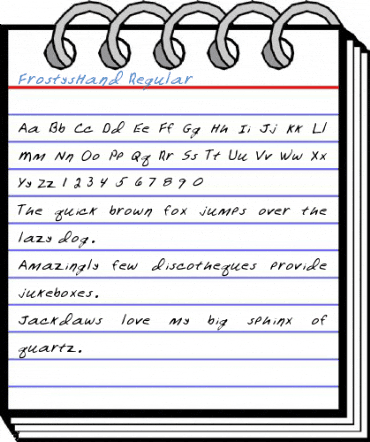 FrostysHand Regular
Aa Bb Cc Dd Ee Ff Gg Hh Ii Jj Kk Ll
Mm Nn Oo Pp Qq Rr Ss Tt Uu Vv Ww Xx
Yy Zz 1 2 3 4 5 6 7 8 9 0
The quick brown fox jumps over the
lazy dog.
Amazingly few discotheques provide
jukeboxes.
Jackdaws love my big sphinx of
quartz.